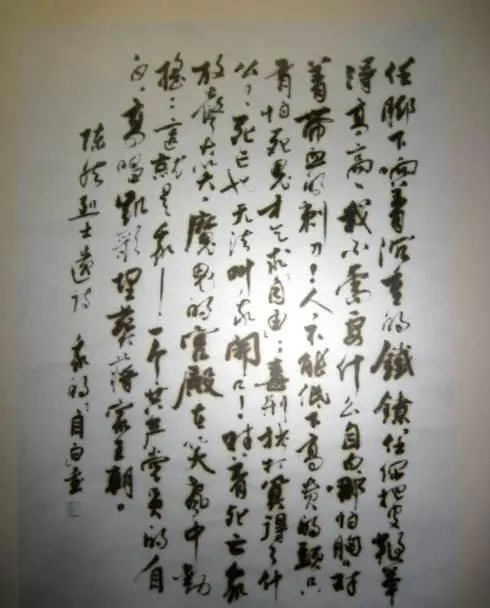 任腳下响着沉重的鐵鐐,任你把皮鞭举
得高高,我不需要什么自白,哪怕胸口对
着帶血的刺刀!人,不能低下高贵的頭,只
有怕死鬼才乞求"自由";毒刑拷打算得了什
么?死亡也无法叫我開口!对着死亡我
放聲大笑,魔鬼的宫殿在笑声中動
搖;這就是我——一个共产党员的自
白,高唱凱歌埋葬蒋家王朝。
陈然烈士遗诗 我的"自白"書